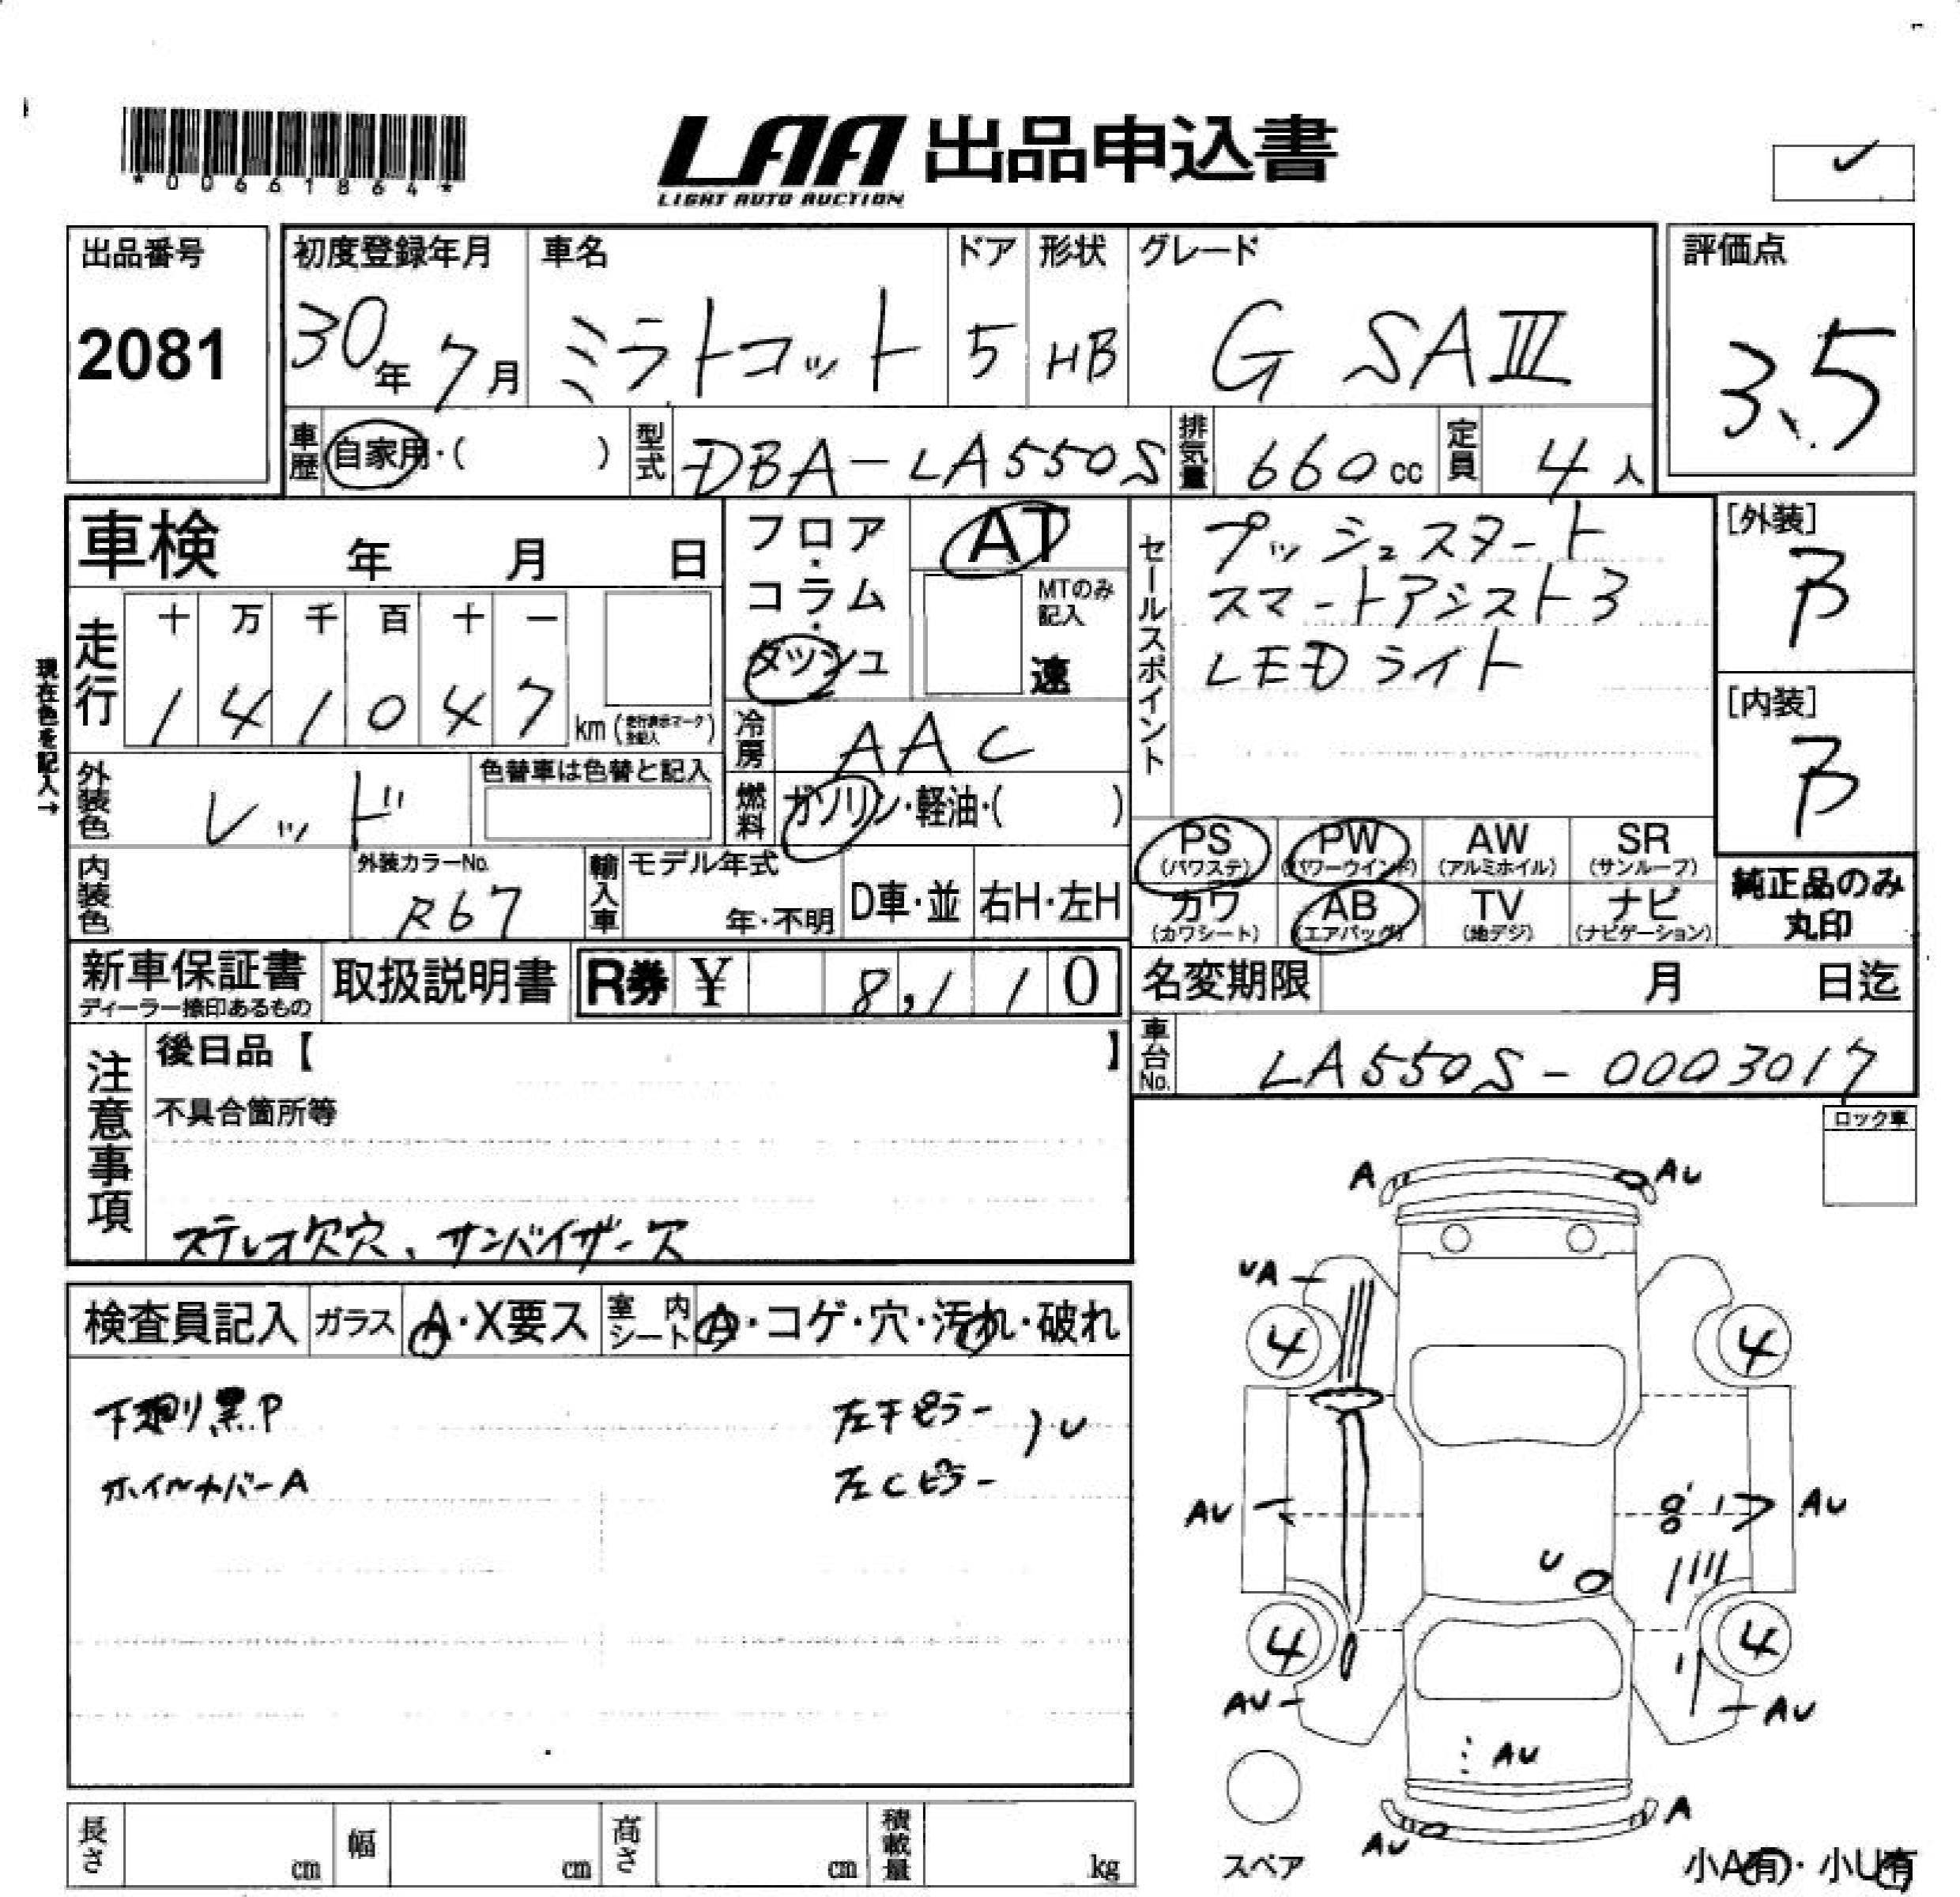 *00661864*
LAA 出品申込書
LIGHT AUTO AUCTION
出品番号
2081
初度登録年月
30年7月
車名
ミラトコット
ドア
5
形状
HB
グレード
G SAⅢ
評価点
3.5
車歴
自家用・( )
型式
DBA-LA550S
排気量
660cc
定員
4人
車検 年 月 日
フロア・コラム・ダッシュ
AT
MTのみ記入
速
セールスポイント
プッシュスタート
スマートアシスト3
LEDライト
[外装]
B
[内装]
B
現在色を記入→
走行
十 万 千 百 十 一
1 4 1 0 4 7 km
冷房
AAC
外装色
レッド
色替車は色替と記入
燃料
ガソリン・軽油・( )
内装色
外装カラーNo.
R67
輸入車
モデル年式
年・不明
D車・並
右H・左H
PS
(パワステ)
PW
(パワーウインド)
AW
(アルミホイル)
SR
(サンルーフ)
カワ
(カワシート)
AB
(エアバッグ)
TV
(地デジ)
ナビ
(ナビゲーション)
純正品のみ
丸印
新車保証書
ディーラー捺印あるもの
取扱説明書
R券 ¥ 8,110
名変期限 月 日迄
車台No.
LA550S-0003017
注意事項
後日品【 】
不具合箇所等
ステレオ欠穴、サンバイザー欠
ロック車
検査員記入
ガラス
A・X要ス
室内シート
A・コゲ・穴・汚れ・破れ
下廻り黒P
ホイルカバーA
左Cピラー
U
A
AU
UA
4
4
AU
AU
U
4
4
AU
AU
AU
A
AU
スペア
小A有・小U有
長さ cm
幅 cm
高さ cm
積載量 kg